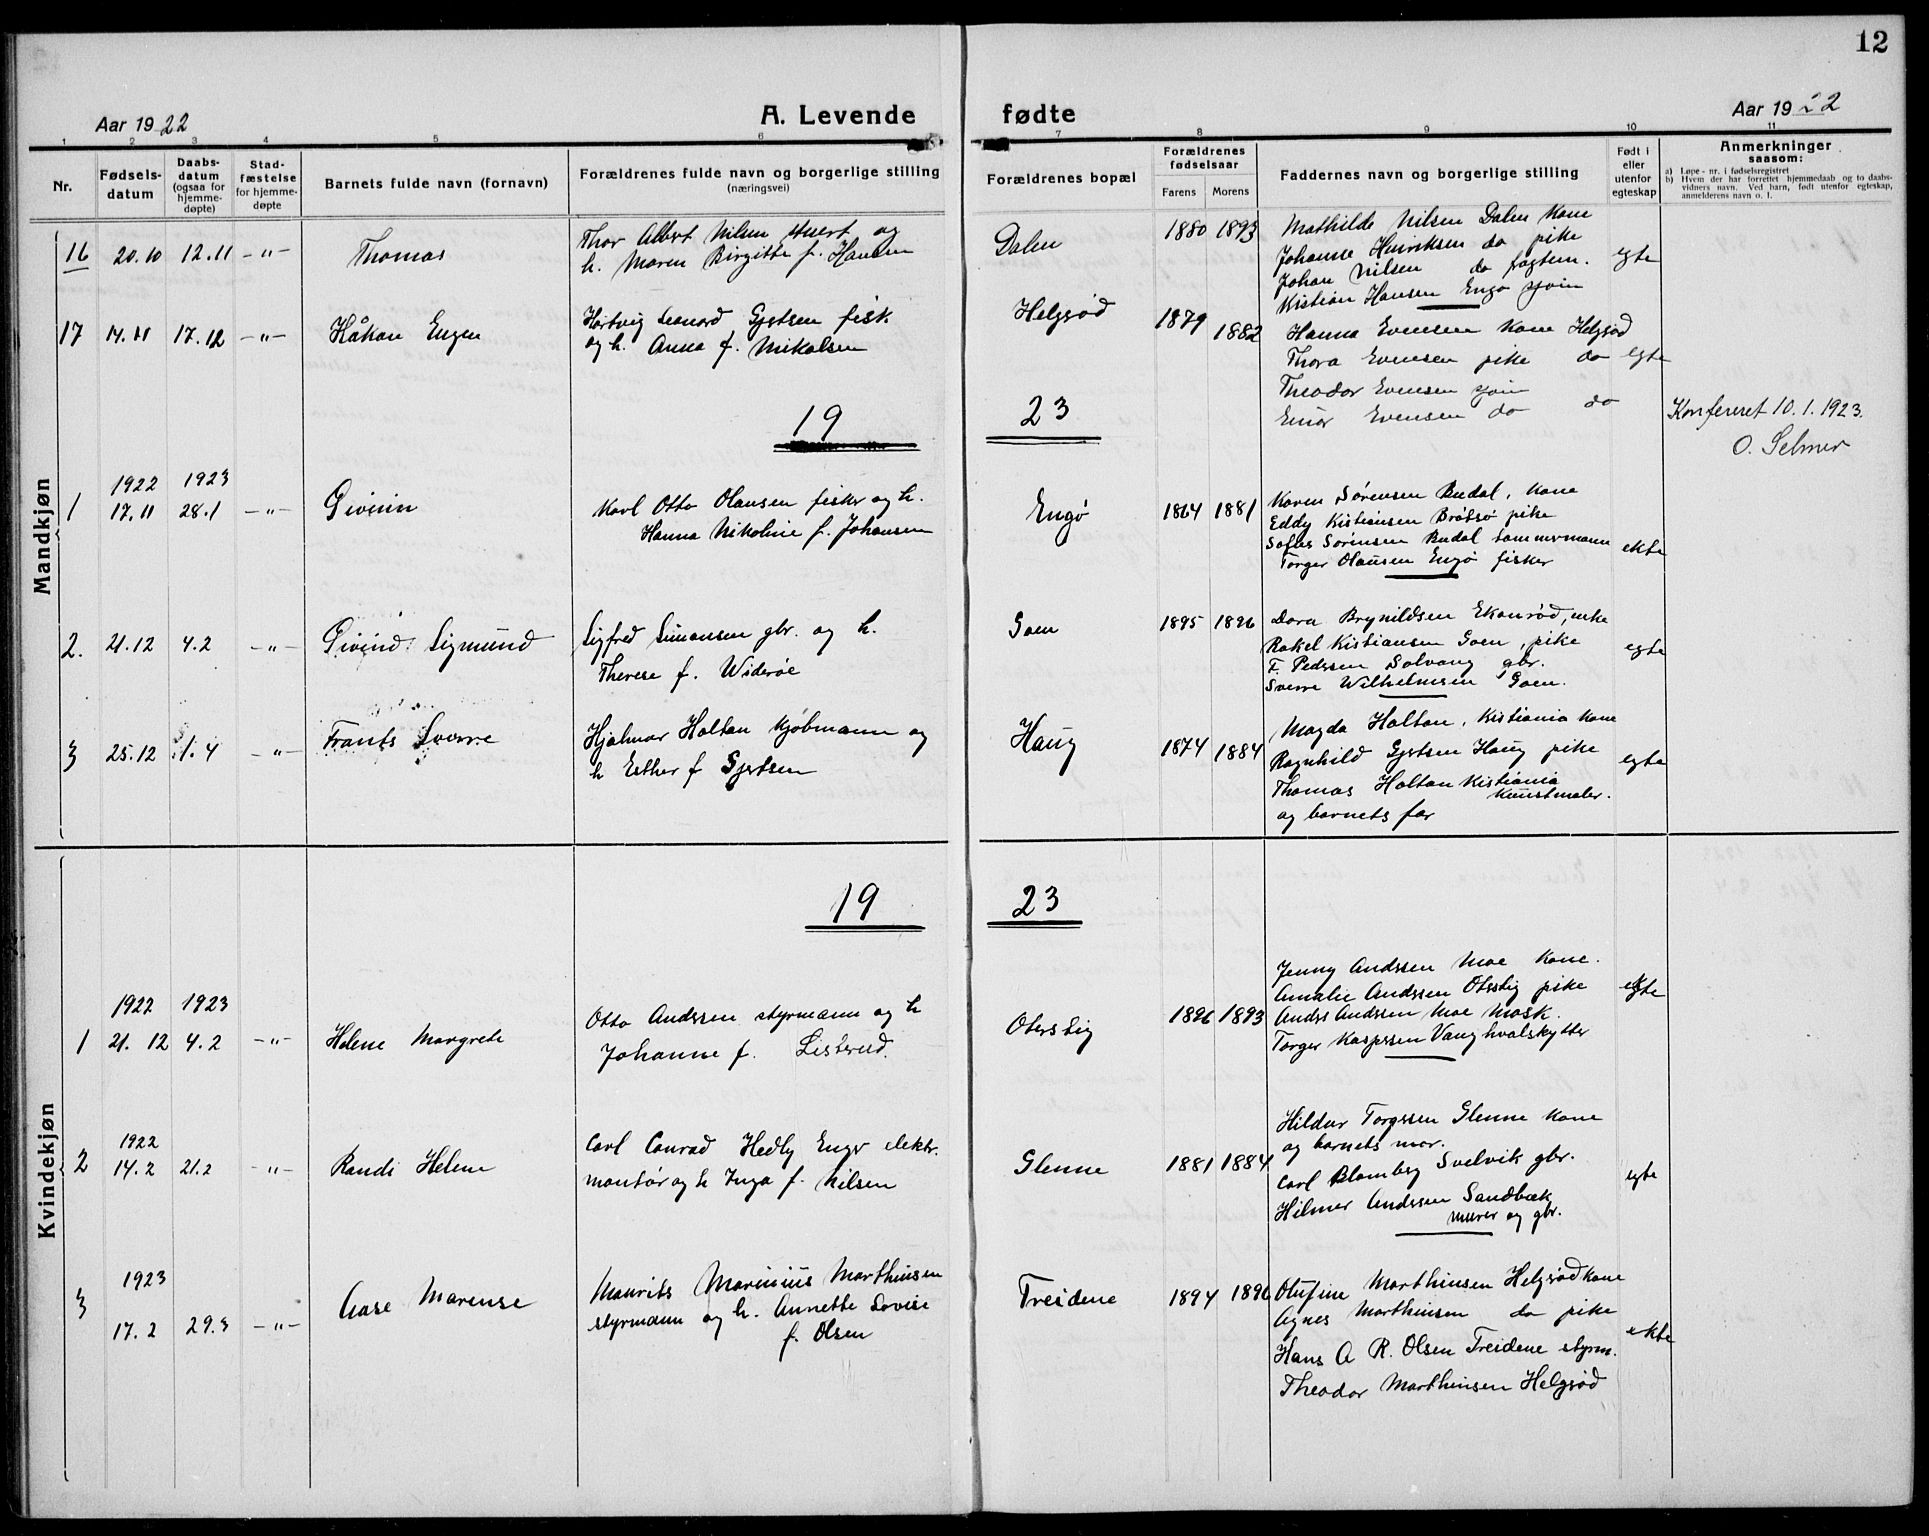 12
Aar 1922
A. Levende fødte
Aar 1922
1 2 3 4 5 6 7 8 9 10 11
Nr.
Fødsels-
datum
Daabs-
datum
(ogsaa for
hjemme-
døpte)
Stad-
fæstelse
for hjemme-
døpte
Barnets fulde navn (fornavn)
Forældrenes fulde navn og borgerlige stilling
(næringsvei)
Forældrenes bopæl
Forældrenes
fødselsaar
Farens Morens
Faddernes navn og borgerlige stilling
Født i
eller
utenfor
egteskap
Anmerkninger
saasom:
a) Løpe-nr. i fødselsregistret
b) Hvem der har forrettet hjemmedaab og to daabs-
vidners navn. Ved barn, født utenfor egteskap,
anmelderens navn o. l.
Mandkjøn
16 20.10 12.11 -"- Thomas
Thor Albert Nilsen stuert og
h. Maren Birgitte f. Hansen
Dalen 1880 1893
Mathilde Nilsen Dalen kone
Johanne Henriksen do pike
Johan Nilsen do fragtem.
Kistian Hansen Engø
egte
17 14.11 17.12 -"- Håkon Eugen
Hartvig Leonard Gjertsen fisk.
og h. Anna f. Mikalsen
Helgerød 1879 1882
Hanna Evensen kone Helgerød
Thora Evensen pike do
Theodor Evensen
Einar Evensen do do
egte
Konfereret 10.1.1923.
O. Selmer
19 23
1922 1923
1 17.11 28.1 -"- Eivinn
Karl Otto Olausen fisker og h.
Hanna Nikoline f. Johansen
Engø 1864 1881
Karen Sørensen Budal, kone
Eddy Kistiansen Brøtsø pike
Sofus Sørensen Budal tømmermann
Torger Olausen Engø fisker
ekte
2. 21.12 4.2 -"- Eivind Sigmund
Sigfred Simonsen gbr. og h.
Therese f. Widerøe
Goen 1895 1896
Dora Brynildsen Ekenrød, enke
Rakel Kistiansen Goen, pike
F. Pedersen Solvang gbr.
Sverre Wilhelmsen Goen.
egte
3 25.12 1.4 -"- Frants Sverre
Hjalmar Holtan kjøbmann og
h Esther f Gjertsen
Haug 1874 1884
Magda Holtan, Kistiania kone
Ragnhild Gjertsen Haug pike
Thomas Holtan Kistiania
kunstmaler.
og barnets far
egte
Kvindekjøn
19 23
1922 1923
1 21.12 4.2 -"- Helene Margrete
Otto Anderssen styrmann og h
Johanne f. Listerud.
Oterstig 1896 1893
Jenny Anderssen Moe kone.
Amalie Anderssen Oterstig pike
Anders Anderssen Moe mask.
Torger Kasperssen Vaug hvalskytter
egte
1922
2 14.2 21.2 -"- Randi Helene
Carl Conrad Hedly Enger elektr.
montør og h Inga f. Nilsen
Glenne 1881 1884
Hildur Torgersen Glenne kone
og barnets mor.
Carl Blomberg Svelvik gbr.
Hilmar Anderssen Sandbæk
murer og gbr.
egte
1923
3 17.2 29.3 -"- Aase Marense
Maurits Marinius Marthinsen
styrmann og h. Annette Lovise
f. Olsen
Treidene 1894 1896
Olufine Marthinsen Helgerød kone
Agnes Marthinsen do pike
Hans A R. Olsen Treidene styrm.
Theodor Marthinsen Helgerød
ekte